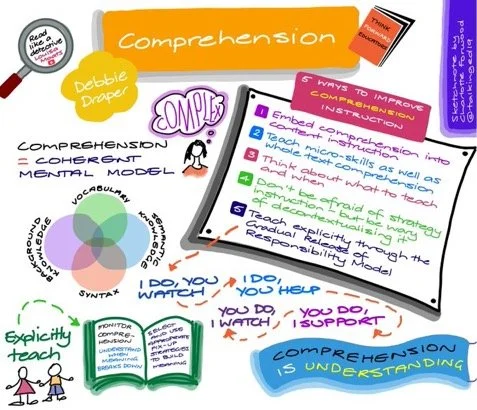 Read
like a
detective
Comprehension
THINK
FORWARD
EDUCATORS
Sketchnote by
Charlotte Forwood
@talkinged19
Debbie
Draper
COMPLEX
5 WAYS TO IMPROVE
COMPREHENSION
INSTRUCTION
1 Embed comprehension into
content instruction
2 Teach micro-skills as well as
whole text comprehension
3 Think about what to teach
and when
4 Don't be afraid of strategy
instruction - but be wary
of decontextualising it
5 Teach explicitly through the
Gradual Release of
Responsibility Model
COMPREHENSION
= COHERENT
MENTAL MODEL
VOCABULARY
BACKGROUND
KNOWLEDGE
SEMANTIC
KNOWLEDGE
SYNTAX
I DO, YOU
WATCH
I DO,
YOU HELP
YOU DO,
I WATCH
YOU DO,
I SUPPORT
Explicitly
teach
MONITOR
COMPRE-
HENSION
UNDERSTAND
WHEN
MEANING
BREAKS DOWN
SELECT
AND USE
APPROPRIATE
FIX-UP
STRATEGIES
TO BUILD
MEANING
COMPREHENSION
IS UNDERSTANDING